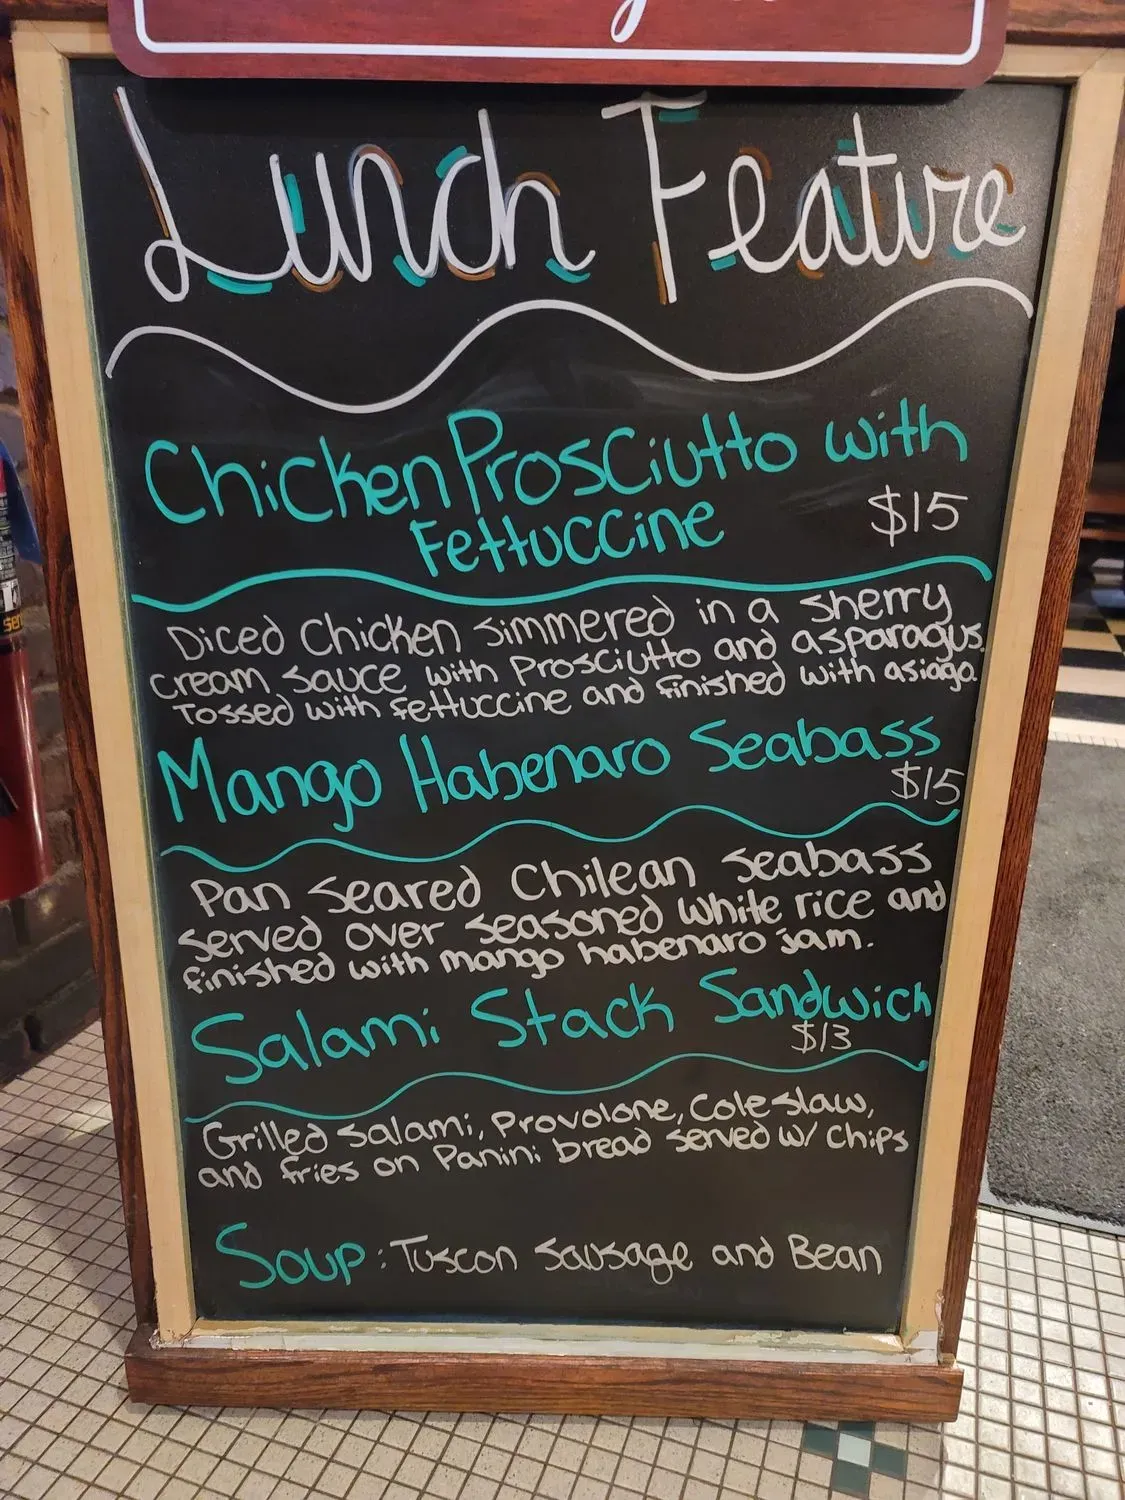 Lunch Feature
Chicken Prosciutto with
Fettuccine
$15
Diced Chicken simmered in a sherry
cream sauce with Prosciutto and asparagus.
Tossed with fettuccine and finished with asiago.
Mango Habenaro Seabass
$15
Pan seared Chilean seabass
served over seasoned white rice and
finished with mango habenaro jam.
Salami Stack Sandwich
$13
Grilled salami, Provolone, Coleslaw,
and fries on Panini bread served w/ Chips
Soup: Tuscon Sausage and Bean